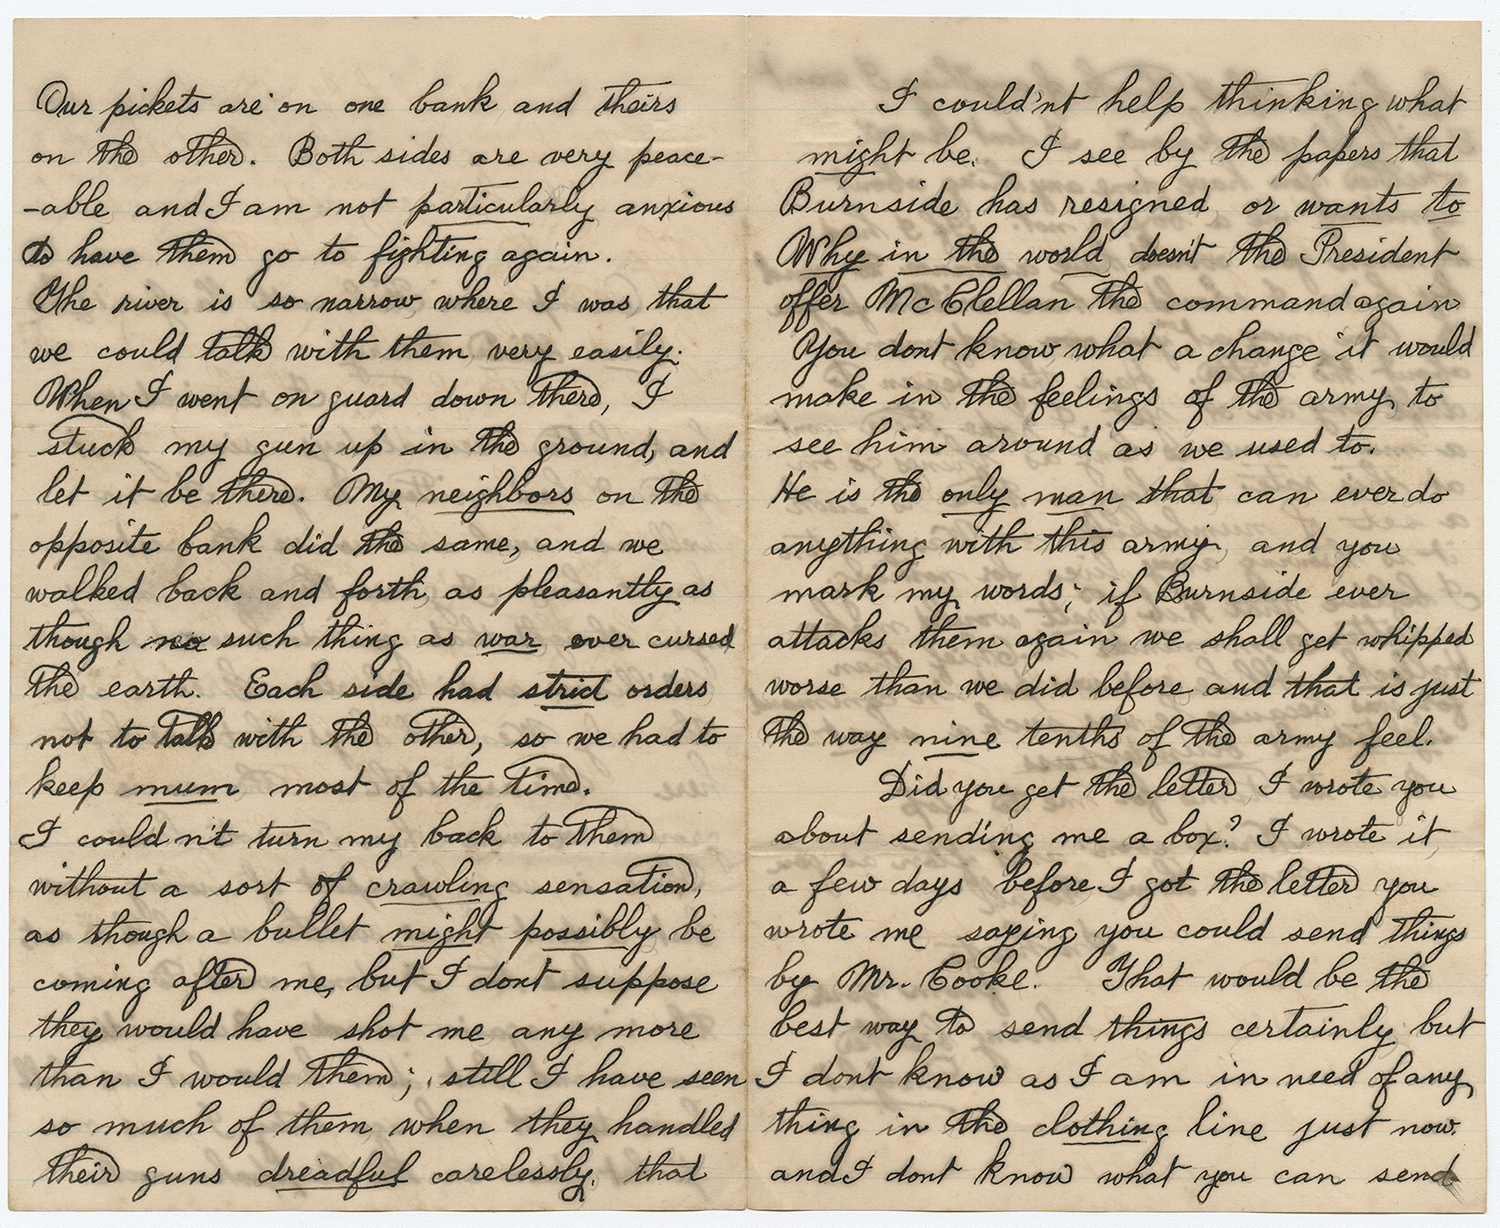 Our pickets are on one bank and theirs
on the other. Both sides are very peace-
-able and I am not particularly anxious
to have them go to fighting again.
The river is so narrow where I was that
we could talk with them very easily.
When I went on guard down there, I
stuck my gun up in the ground, and
let it be there. My neighbors on the
opposite bank did the same, and we
walked back and forth as pleasantly as
though no such thing as war ever cursed
the earth. Each side had strict orders
not to talk with the other, so we had to
keep mum most of the time.
I could n't turn my back to them
without a sort of crawling sensation,
as though a bullet might possibly be
coming after me, but I dont suppose
they would have shot me any more
than I would them; still I have seen
so much of them when they handled
their guns dreadful carelessly, that
I could'nt help thinking what
might be. I see by the papers that
Burnside has resigned, or wants to
Why in the world doesn't the President
offer McClellan the command again
You dont know what a change it would
make in the feelings of the army, to
see him around as we used to.
He is the only man that can ever do
anything with this army, and you
mark my words; if Burnside ever
attacks them again we shall get whipped
worse than we did before and that is just
the way nine tenths of the army feel.
Did you get the letter I wrote you
about sending me a box? I wrote it
a few days before I got the letter you
wrote me saying you could send things
by Mr. Cooke. That would be the
best way to send things certainly but
I dont know as I am in need of any
thing in the clothing line just now.
and I dont know what you can send